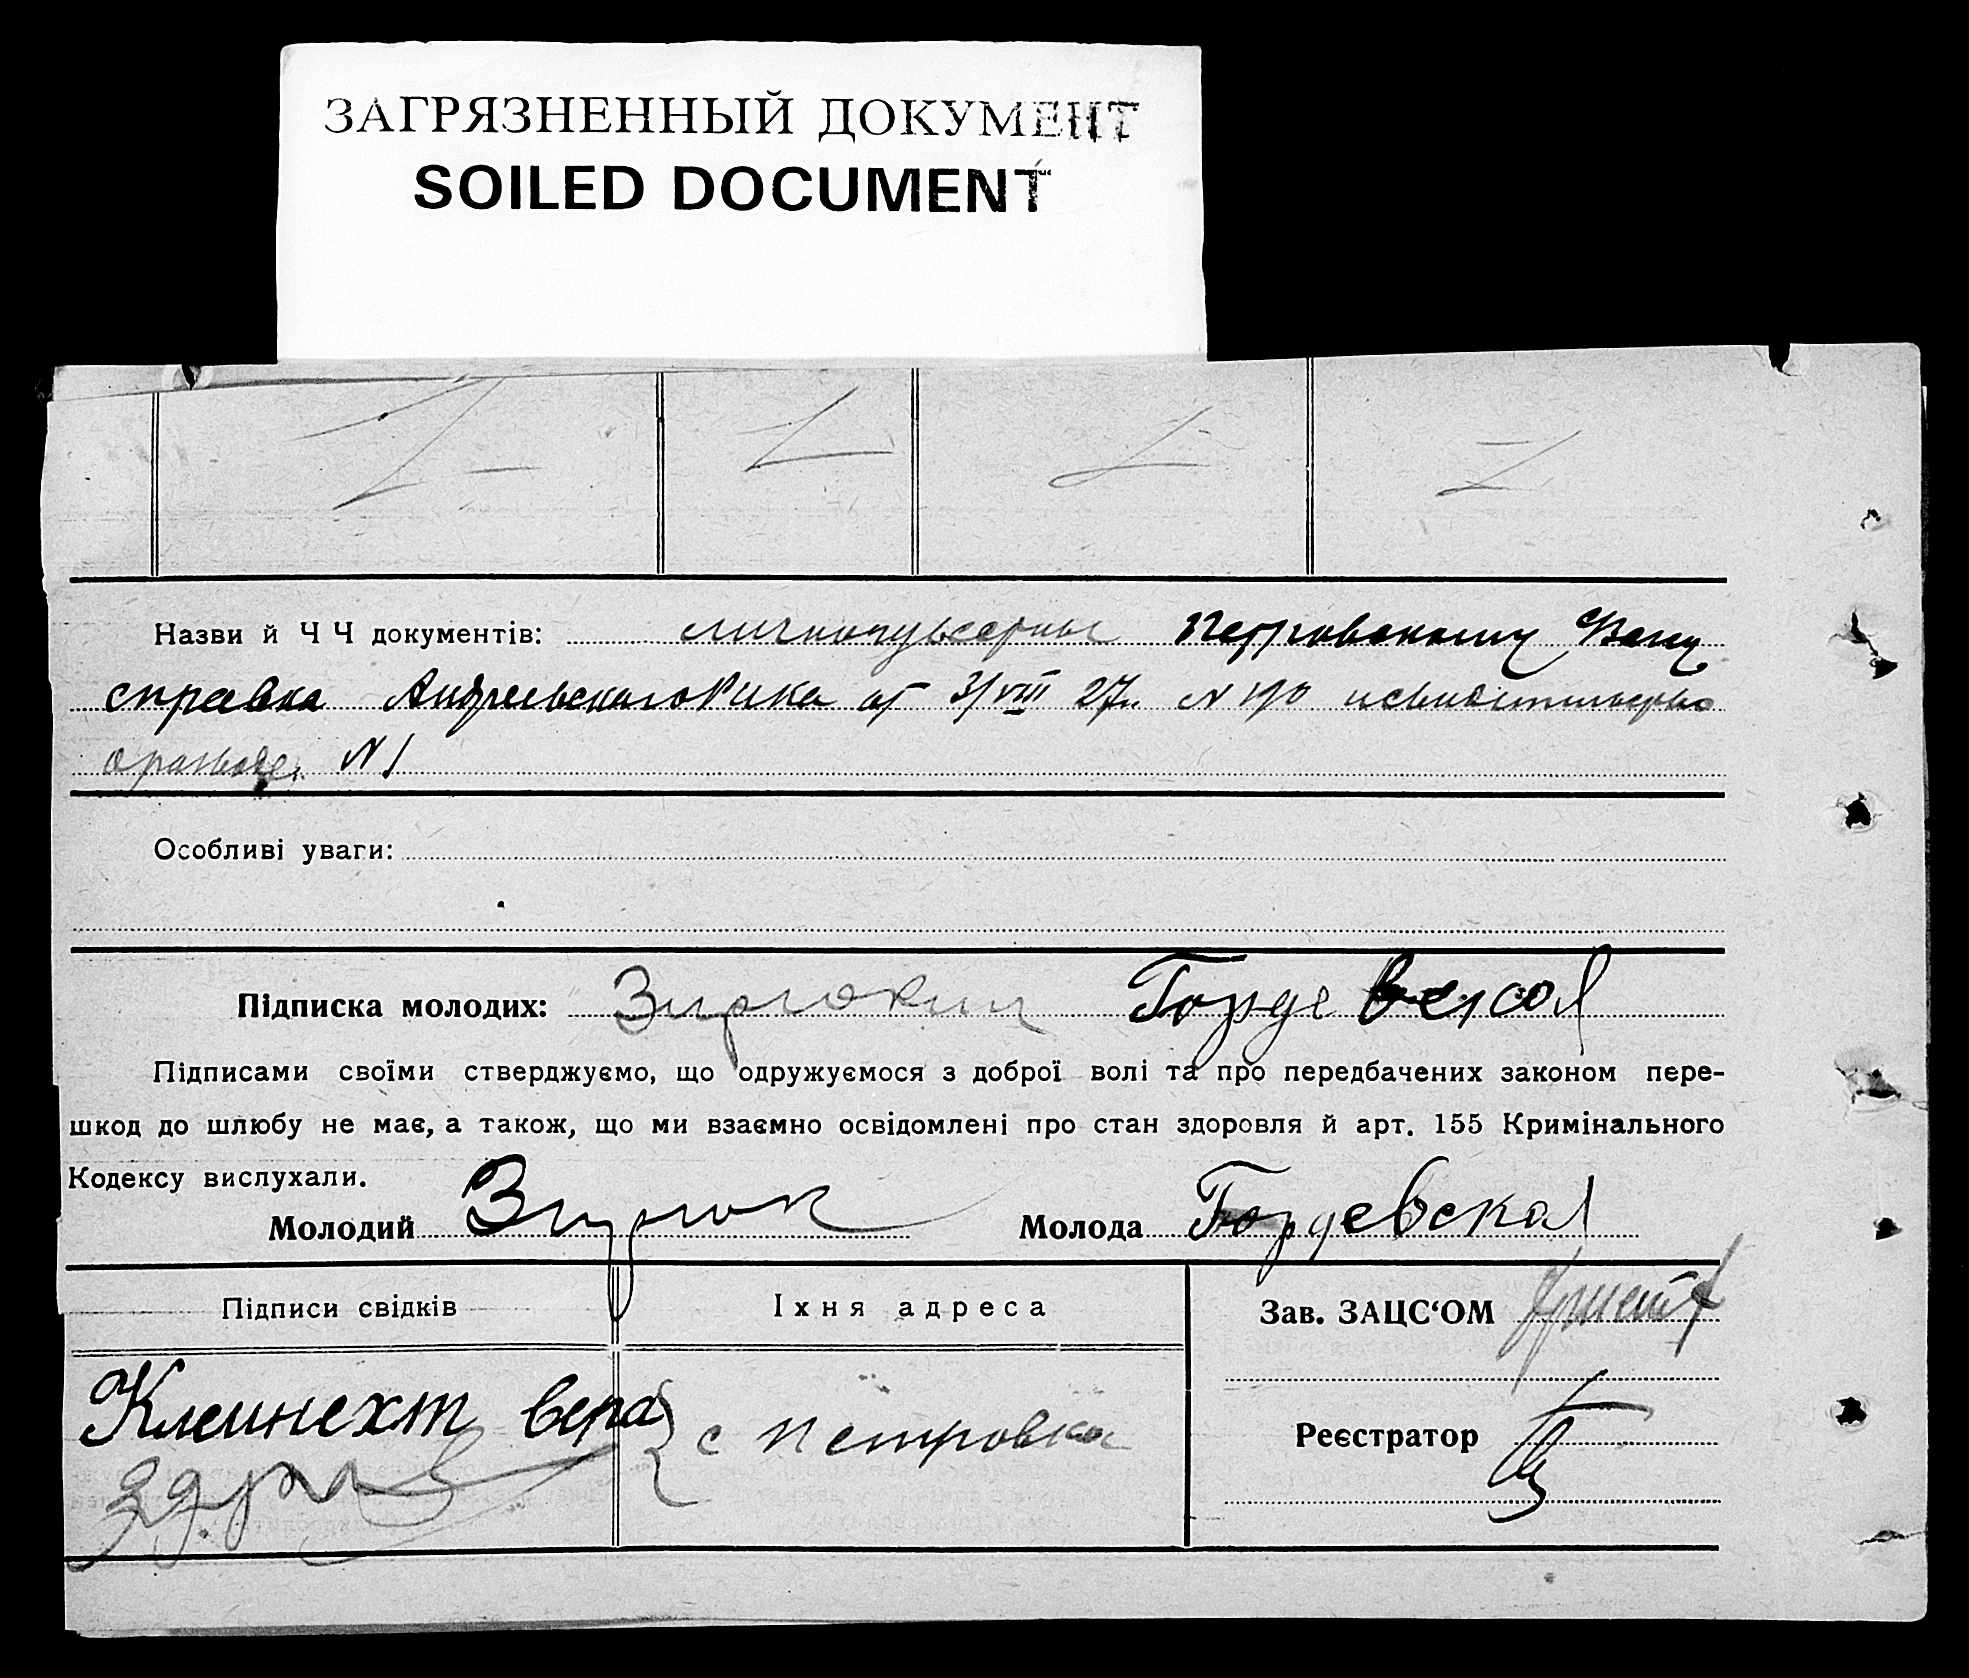 ЗАГРЯЗНЕННЫЙ ДОКУМЕНТ
SOILED DOCUMENT
Назви й Ч Ч документів: Петровскому
справка Андреевскаго РИКа от 31 VIII 27г. N 190
о разводе N 1
Особливі уваги:
Підписка молодих: Гордевская
Підписами своїми стверджуємо, що одружуємося з доброї волі та про передбачених законом пере-
шкод до шлюбу не має, а також, що ми взаємно освідомлені про стан здоровля й арт. 155 Кримінального
Кодексу вислухали.
Молодий Молода Гордевская
Підписи свідків Їхня адреса Зав. ЗАЦС‘ОМ
Клеинехт вера с Петровка
Реєстратор